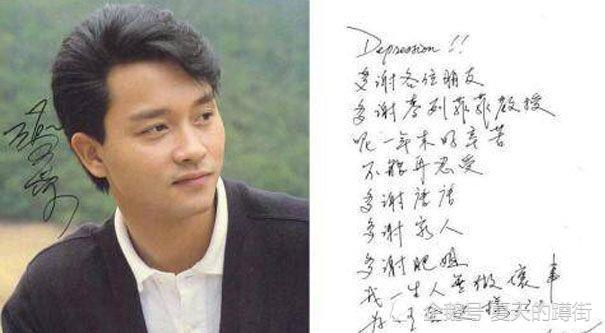 Depression !!
多謝各位朋友
多謝麥列菲菲教授
呢一年來好辛苦
不能再忍受
多謝唐唐
多謝家人
多謝肥姐
我一生人無做壞事
企鹅号 夏天的蹲街